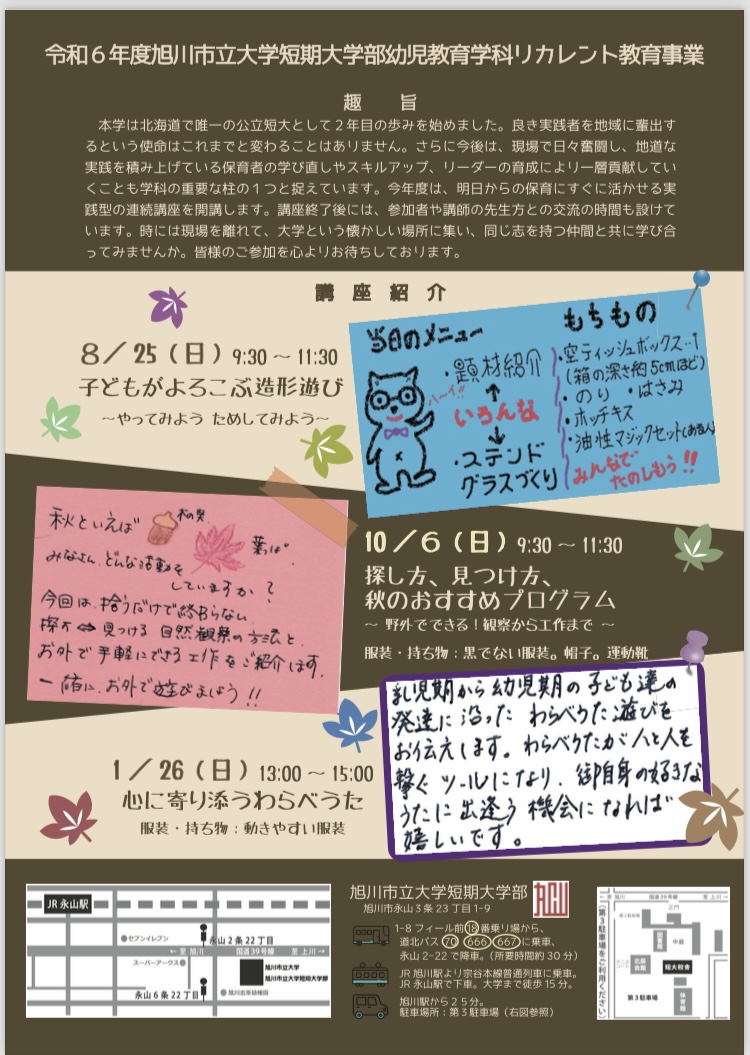 令和６年度旭川市立大学短期大学部幼児教育学科リカレント教育事業
趣　旨
本学は北海道で唯一の公立短大として２年目の歩みを始めました。良き実践者を地域に輩出す
るという使命はこれまでと変わることはありません。さらに今後は、現場で日々奮闘し、地道な
実践を積み上げている保育者の学び直しやスキルアップ、リーダーの育成により一層貢献してい
くことも学科の重要な柱の１つと捉えています。今年度は、明日からの保育にすぐに活かせる実
践型の連続講座を開講します。講座終了後には、参加者や講師の先生方との交流の時間も設けて
います。時には現場を離れて、大学という懐かしい場所に集い、同じ志を持つ仲間と共に学び合
ってみませんか。皆様のご参加を心よりお待ちしております。
講 座 紹 介
8／25（日）9:30 〜 11:30
子どもがよろこぶ造形遊び
〜やってみよう ためしてみよう〜
当日のメニュー
・題材紹介
ハーイ!!
いろんな
・ステンド
グラスづくり
もちもの
・空ティッシュボックス…1
(箱の深さ約5cmほど)
・のり ・はさみ
・ホッチキス
・油性マジックセット(ある人)
みんなで
たのしもう!!
秋といえば 木の実
葉っぱ
みなさん、どんな活動を
していますか？
今回は、拾うだけで終わらない
探す⇔見つける 自然観察の方法と、
お外で手軽にできる工作をご紹介します。
一緒に、お外で遊びましょう!!
10／6（日）9:30 〜 11:30
探し方、見つけ方、
秋のおすすめプログラム
〜 野外でできる！観察から工作まで 〜
服装・持ち物：黒でない服装。帽子。運動靴
乳児期から幼児期の子ども達の
発達に沿った わらべうた遊びを
お伝えします。わらべうたが人と人を
繋ぐツールになり、御自身の好きな
うたに出逢う機会になれば
嬉しいです。
1／26（日）13:00 〜 15:00
心に寄り添うわらべうた
服装・持ち物：動きやすい服装
JR 永山駅
セブンイレブン
永山２条 22 丁目
← 至 旭川 国道39号線 至 上川 →
スーパーアークス
旭川市立大学
旭川市立大学短期大学部
永山６条 22 丁目
旭川出雲幼稚園
旭川市立大学短期大学部
旭川
旭川市永山３条 23 丁目 1-9
1-8 フィール前⑱番乗り場から、
道北バス 70 666 667 に乗車、
永山 2-22 で降車。（所要時間約 30 分）
JR 旭川駅より宗谷本線普通列車に乗車。
JR 永山駅で下車。大学まで徒歩 15 分。
旭川駅から２５分。
駐車場所：第３駐車場（右図参照）
← 至 旭川 国道39号線 至 上川 →
正門
図書館
中庭
短大校舎
体育館
第３駐車場
（第３駐車場をご利用ください）